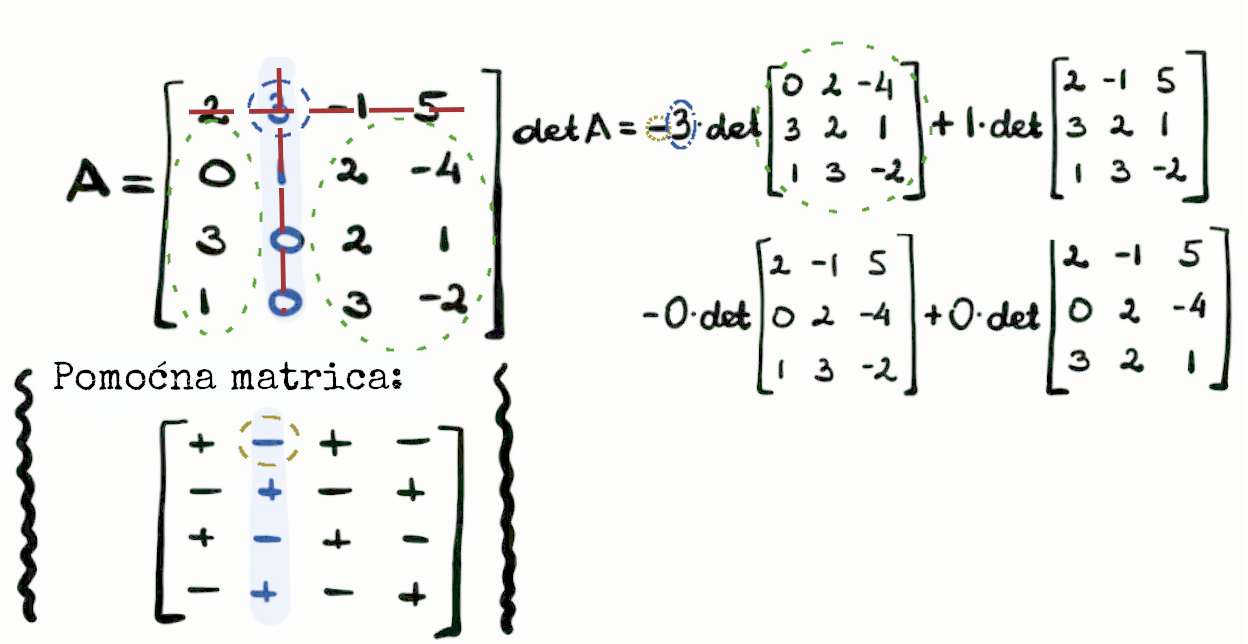 A = [ 2 3 -1 5
0 1 2 -4
3 0 2 1
1 0 3 -2 ]
det A = -3·det [ 0 2 -4
3 2 1
1 3 -2 ] + 1·det [ 2 -1 5
3 2 1
1 3 -2 ]
-0·det [ 2 -1 5
0 2 -4
1 3 -2 ] + 0·det [ 2 -1 5
0 2 -4
3 2 1 ]
Pomoćna matrica:
[ + - + -
- + - +
+ - + -
- + - + ]